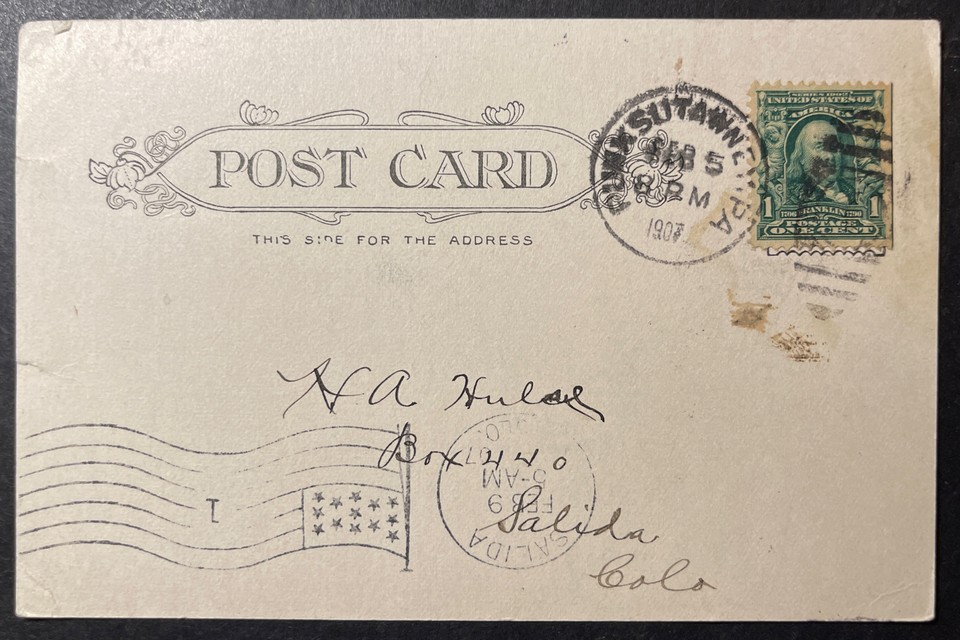 POST CARD
THIS SIDE FOR THE ADDRESS
PUNXSUTAWNEY, PA
FEB 5
8 PM
1907
SERIES 1902
UNITED STATES OF
AMERICA
1 1706 FRANKLIN 1790 1
POSTAGE
ONE CENT
H A
Box 440
Salida
Colo
1
SALIDA
FEB 9
5-AM
07
COLO.